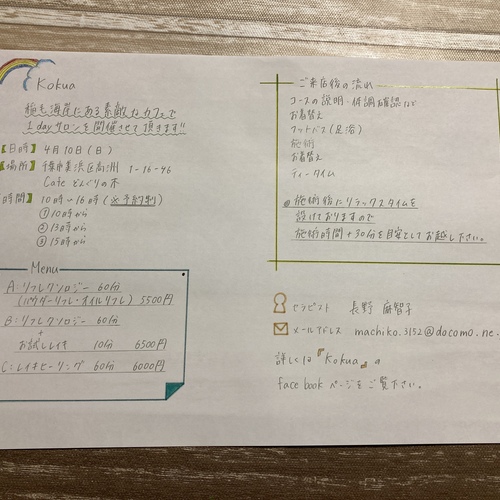 Kokua
稲毛海岸にある素敵なカフェで
1dayサロンを開催させて頂きます!!
【日時】 4月10日(日)
【場所】 千葉市美浜区高洲 1-16-46
Cafe どんぐりの木
時間】 10時〜16時(※予約制)
① 10時から
② 13時から
③ 15時から
Menu
A:リフレクソロジー 60分
(パウダーリフレ・オイルリフレ) 5500円
B:リフレクソロジー 60分
+
お試しレイキ 10分 6500円
C:レイキヒーリング 60分 6000円
ご来店後の流れ
コースの説明・体調確認など
お着替え
フットバス(足浴)
施術
お着替え
ティータイム
施術後にリラックスタイムを
設けておりますので
施術時間+30分を目安としてお越し下さい。
セラピスト 長野 麻智子
メールアドレス machiko.3152@docomo.ne.
詳しくは『Kokua』の
facebookページをご覧下さい。